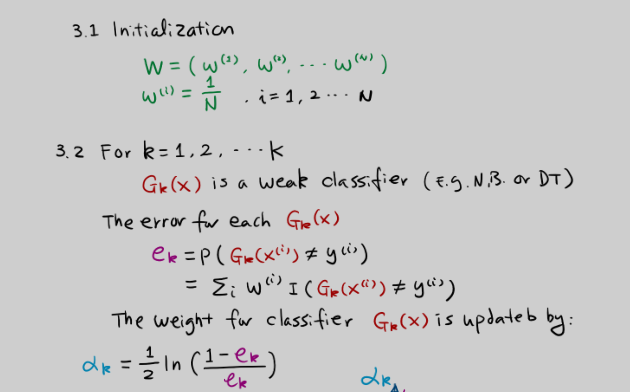 3.1 Initialization
W = ( w⁽¹⁾, w⁽²⁾, ... w⁽ᴺ⁾ )
w⁽ⁱ⁾ = 1/N . i = 1, 2 ... N
3.2 For k = 1, 2, ... k
Gₖ(x) is a weak classifier (E.g. N.B. or DT)
The error for each Gₖ(x)
eₖ = P( Gₖ(x⁽ⁱ⁾) ≠ y⁽ⁱ⁾)
= Σᵢ w⁽ⁱ⁾ I ( Gₖ(x⁽ⁱ⁾) ≠ y⁽ⁱ⁾)
The weight for classifier Gₖ(x) is updateb by:
αₖ = 1/2 ln ( (1-eₖ)/eₖ )
αₖ